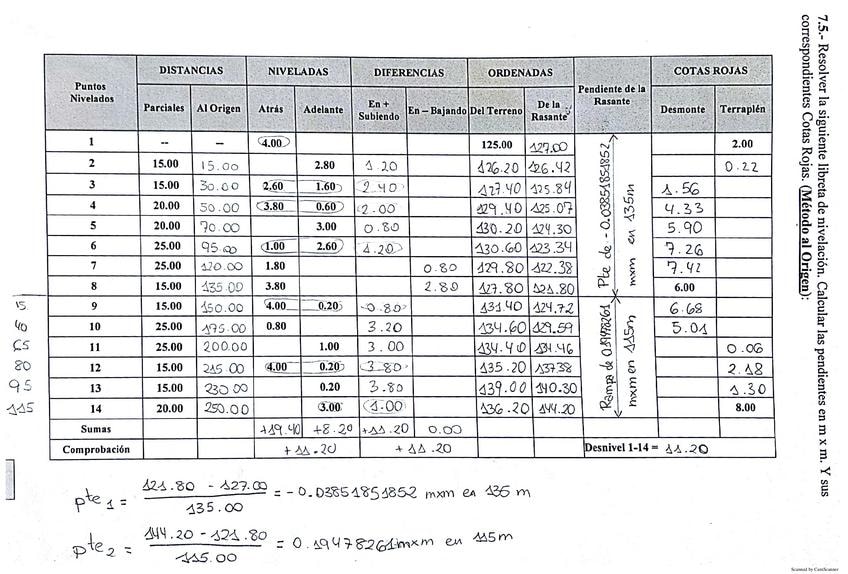 7.5.- Resolver la siguiente libreta de nivelación. Calcular las pendientes en m x m. Y sus
correspondientes Cotas Rojas. (Método al Origen):
Puntos Nivelados DISTANCIAS NIVELADAS DIFERENCIAS ORDENADAS Pendiente de la Rasante COTAS ROJAS
Parciales Al Origen Atrás Adelante En + Subiendo En – Bajando Del Terreno De la Rasante Desmonte Terraplén
1 -- -- 4.00 125.00 127.00 2.00
2 15.00 15.00 2.80 1.20 126.20 126.42 0.22
3 15.00 30.00 2.60 1.60 2.40 127.40 125.84 1.56
4 20.00 50.00 3.80 0.60 2.00 129.40 125.07 4.33
5 20.00 70.00 3.00 0.80 130.20 124.30 5.90
6 25.00 95.00 1.00 2.60 1.20 130.60 123.34 7.26
7 25.00 120.00 1.80 0.80 129.80 122.38 7.42
8 15.00 135.00 3.80 2.80 127.80 121.80 6.00
Pte de - 0.03851851852
mxm en 135m
15 9 15.00 150.00 4.00 0.20 0.80 131.40 124.72 6.68
40 10 25.00 175.00 0.80 3.20 134.60 129.59 5.01
65 11 25.00 200.00 1.00 3.00 134.40 134.46 0.06
80 12 15.00 215.00 4.00 0.20 3.80 135.20 137.38 2.18
95 13 15.00 230.00 0.20 3.80 139.00 140.30 1.30
115 14 20.00 250.00 3.00 1.00 136.20 144.20 8.00
Rampa de 0.19478261
mxm en 115m
Sumas +19.40 +8.20 +11.20 0.00
Comprobación +11.20 +11.20 Desnivel 1-14 = 11.20
pte1 = 121.80 - 127.00 / 135.00 = - 0.03851851852 mxm en 135 m
pte2 = 144.20 - 121.80 / 115.00 = 0.19478261 mxm en 115m
Scanned by CamScanner